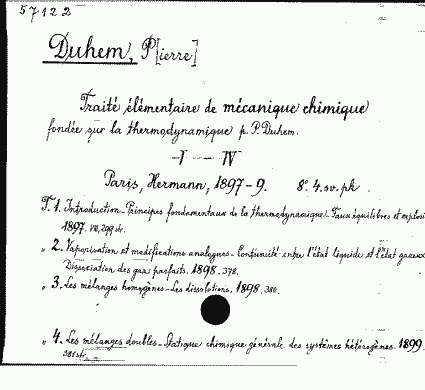 57122
Duhem, P[ierre]
Traité élémentaire de mécanique chimique
fondée sur la thermodynamique p. P. Duhem.
I - IV
Paris, Hermann, 1897-9. 8º. 4. sv. ph.
T. 1. Introduction - Principes fondamentaux de la thermodynamique - Faux équilibres et explosi
1897. VIII, 299 str.
„ 2. Vaporisation et modifications analogues - Continuité entre l'état liquide et l'état gazeux
Dissociation des gaz parfaits. 1898. 378.
„ 3. Les mélanges homogènes - Les dissolutions. 1898. 380.
„ 4. Les mélanges doubles - Statique chimique générale des systèmes hétérogènes. 1899.
381 str.